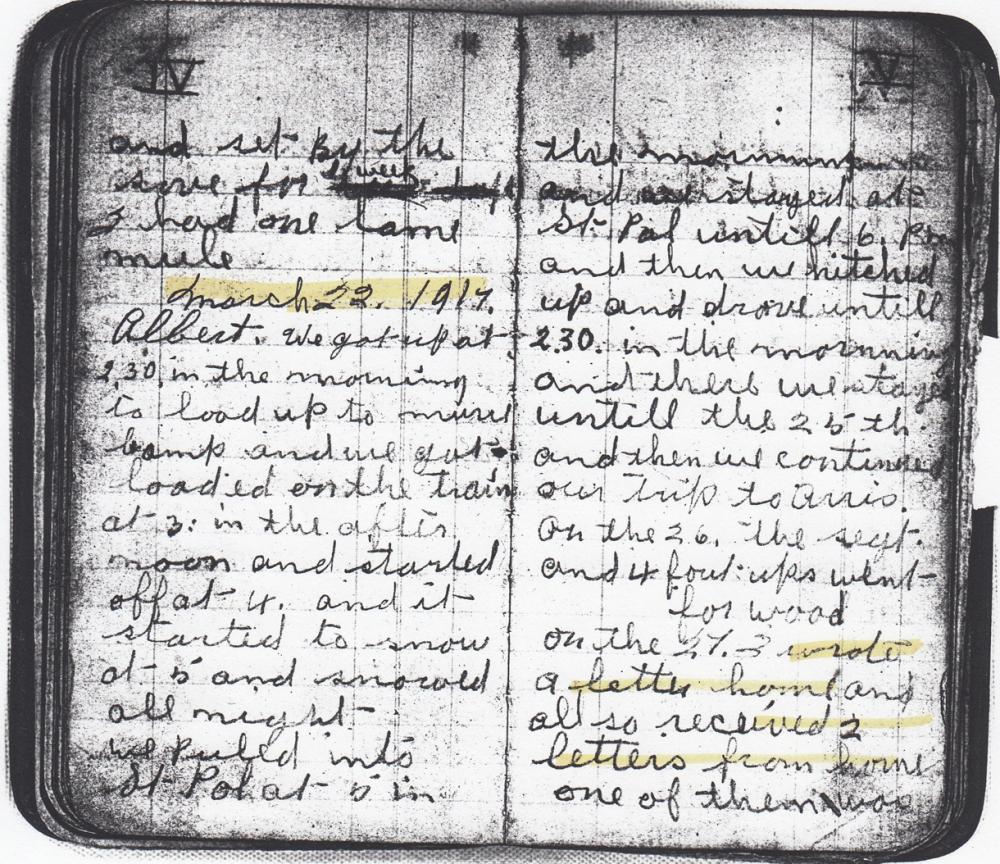 IV
and set By the
stove for a week
I had one lame
mule
March 22. 1917.
Albert. We got up at
2.30. in the morning
to load up to move
camp and we got
loaded on the train
at 3: in the after
noon and started
off at 4. and it
started to snow
at 5 and snowed
all night
we Pulled into
St Pol at 5 in
V
the morning
and stayed at
St. Pal untill 6. Pm
and then we hitched
up and drove untill
2.30. in the morning
and there we stayed
untill the 25 th.
and then we continued
our trip to Arris.
on the 26. the segt.
and 4 four ups went
for wood
on the 27. I wrote
a letter home and
all so received 2
letters from home
one of them was